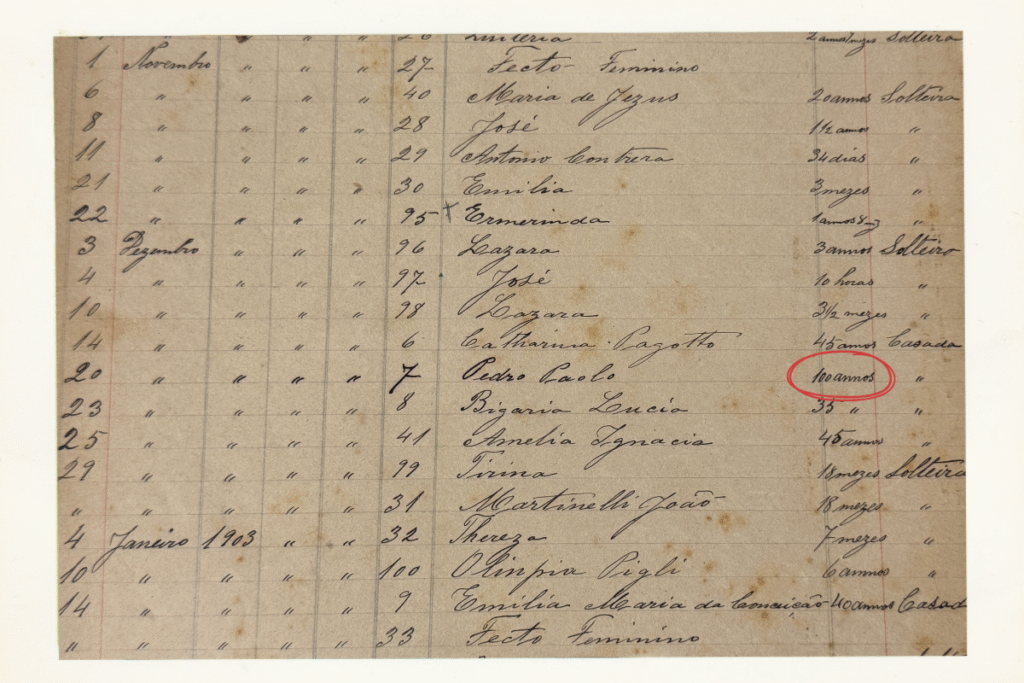 26 Quiteria 2 annos 7 mezes Solteira
1 Novembro " " " 27 Fecto Feminino
6 " " " " 40 Maria de Jezus 20 annos Solteira
8 " " " " 28 José 1 1/2 annos "
11 " " " " 29 Antonio Contrera 34 dias "
21 " " " " 30 Emilia 3 mezes "
22 " " " " 95 Ermerinda 1 annos 8 mz "
3 Dezembro " " " 96 Lazara 3 annos Solteiro
4 " " " " 97 José 10 horas "
10 " " " " 98 Lazara 3 1/2 mezes "
14 " " " " 6 Catharina Pagotto 45 annos Casada
20 " " " " 7 Pedro Paolo 100 annos "
23 " " " " 8 Bigaria Lucia 35 " "
25 " " " " 41 Amelia Ignacia 45 annos "
29 " " " " 99 Tirina 18 mezes Solteira
" " " " " 31 Martinelli João 18 mezes "
4 Janeiro 1903 " " 32 Thereza 7 mezes "
10 " " " " 100 Olinpia Pigli 6 annos "
14 " " " " 9 Emilia Maria da Conceição 40 annos Casad
" " " " " 33 Fecto Feminino